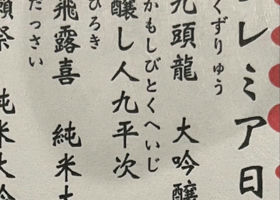 レミア日
くずりゅう
九頭龍 大吟醸
かもしびとくへいじ
醸し人九平次
ひろき
飛露喜 純米大
だっさい
獺祭 純米大吟